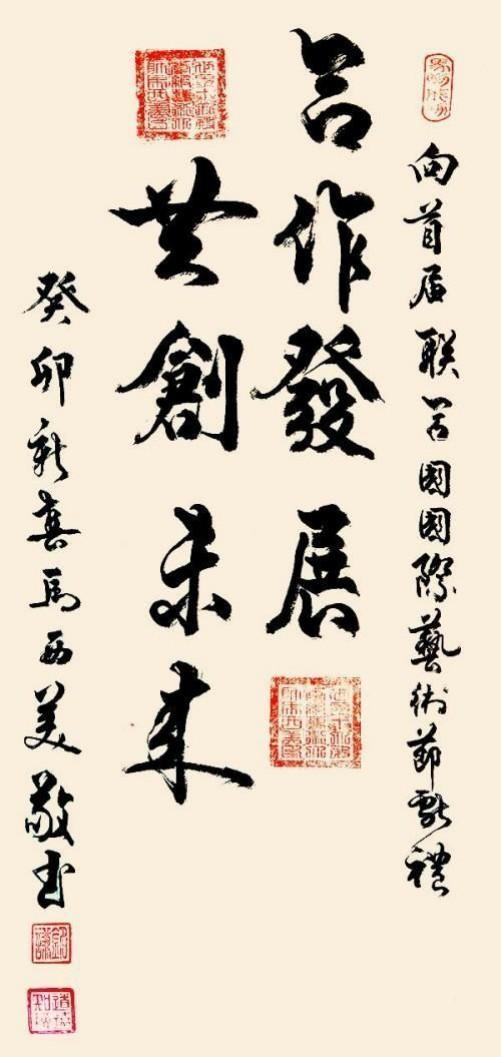 向首届联合國國際藝術節獻禮
合作發展
共創未来
癸卯新春馬西美敬书